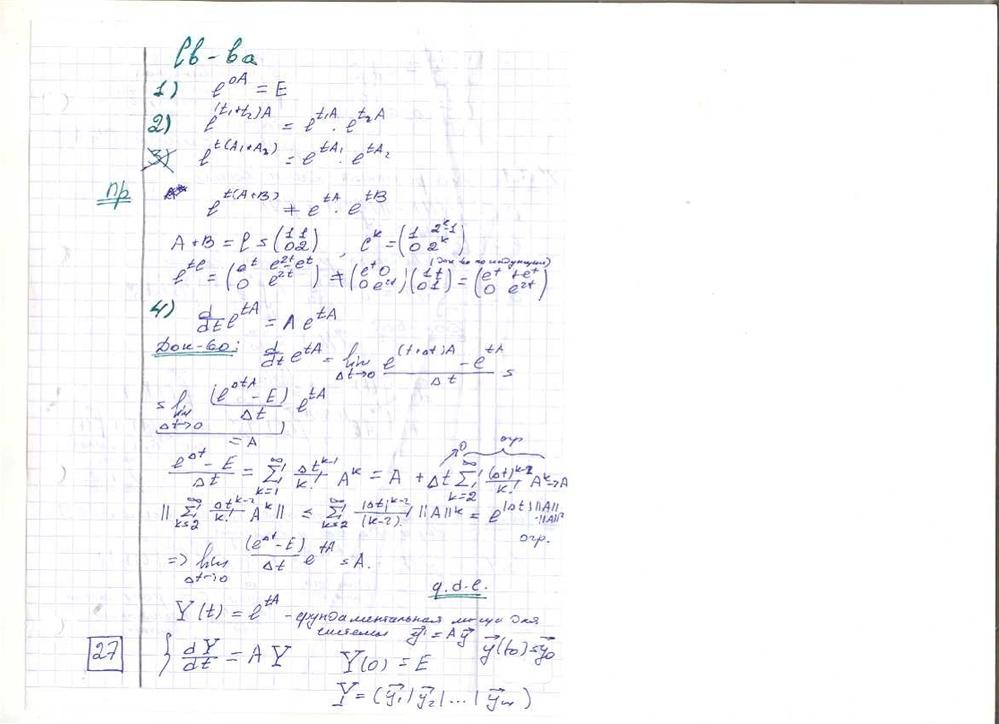 Св-ва
1) e^{0A} = E
2) e^{(t₁+t₂)A} = e^{t₁A} · e^{t₂A}
3) e^{t(A₁+A₂)} = e^{tA₁} · e^{tA₂}
Пр e^{t(A+B)} ≠ e^{tA} · e^{tB}
A+B = C = (1 1; 0 2), C^k = (1 2^k-1; 0 2^k)
(док-во по индукции)
e^{tC} = (e^t e^{2t}-e^t; 0 e^{2t}) ≠ (e^t 0; 0 e^{2t})(1 t; 0 1) = (e^t te^t; 0 e^{2t})
4) d/dt e^{tA} = A e^{tA}
Док-во: d/dt e^{tA} = lim_{Δt→0} (e^{(t+Δt)A} - e^{tA})/Δt =
= lim_{Δt→0} (e^{ΔtA} - E)/Δt e^{tA}
= A
огр
(e^{Δt} - E)/Δt = Σ_{k=1}^∞ Δt^{k-1}/k! A^k = A + Δt Σ_{k=2}^∞ (Δt)^{k-2}/k! A^k → A
||Σ_{k=2}^∞ Δt^{k-2}/k! A^k|| ≤ Σ_{k=2}^∞ |Δt|^{k-2}/(k-2)! ||A||^k = e^{|Δt| ||A||} · ||A||²
огр.
=> lim_{Δt→0} (e^{Δt} - E)/Δt e^{tA} = A.
q.d.e.
Y(t) = e^{tA} - фундаментальная для
системы y⃗' = A y⃗
y⃗(t₀) = y⃗₀
27 { dY/dt = A Y Y(0) = E
Y = (y⃗₁ | y⃗₂ | ... | y⃗ₙ)